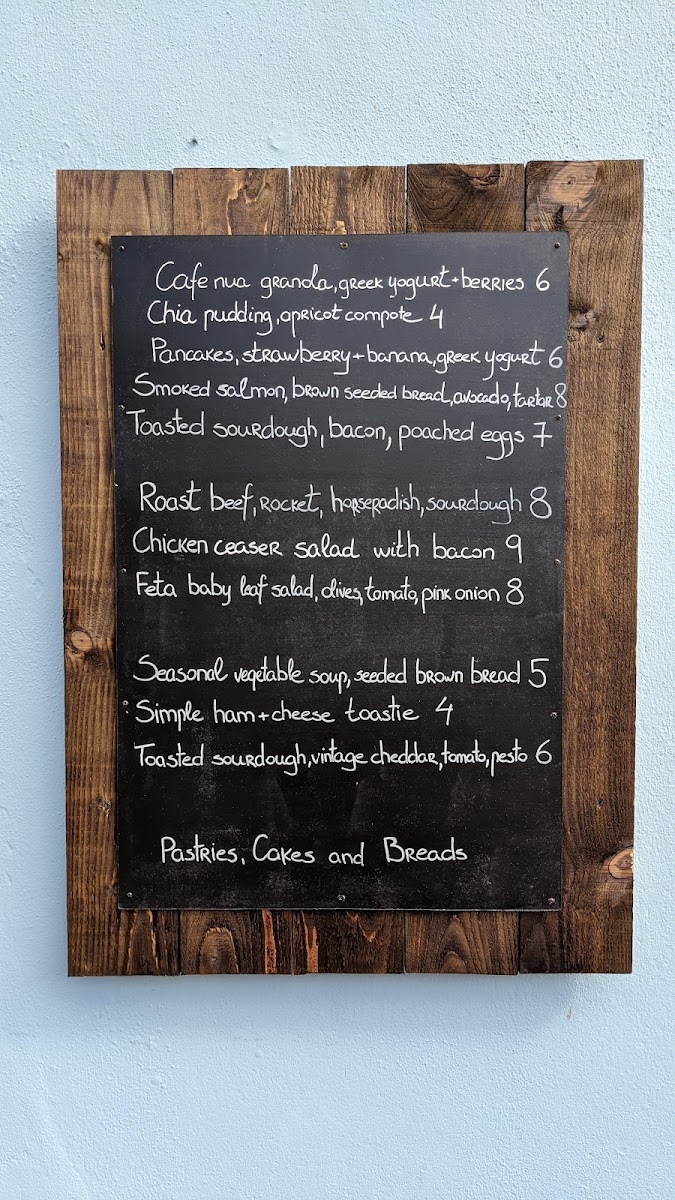 Cafe nua granola, greek yogurt + berries 6
Chia pudding, apricot compote 4
Pancakes, strawberry + banana, greek yogurt 6
Smoked salmon, brown seeded bread, avocado, tartar 8
Toasted sourdough, bacon, poached eggs 7
Roast beef, rocket, horseradish, sourdough 8
Chicken ceaser salad with bacon 9
Feta baby leaf salad, olives, tomato, pink onion 8
Seasonal vegetable soup, seeded brown bread 5
Simple ham + cheese toastie 4
Toasted sourdough, vintage cheddar, tomato, pesto 6
Pastries, Cakes and Breads